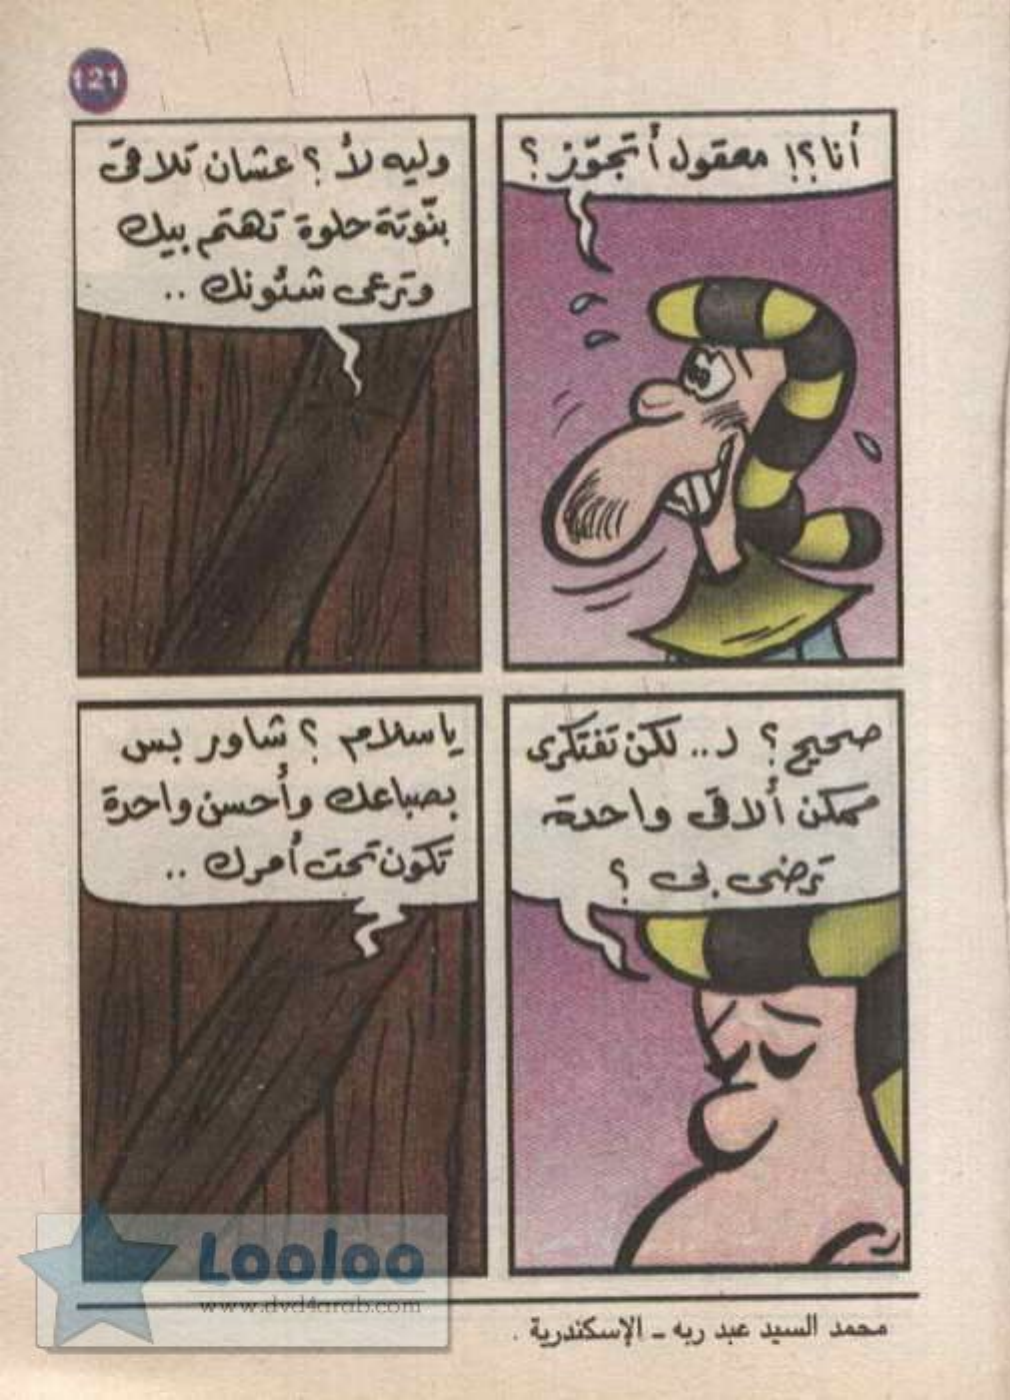 121
أنا؟! معقول أتجوّز؟
وليه لأ؟ عشان تلاقى
بنّوتة حلوة تهتم بيك
وترعى شئونك ..
صحيح؟ لـ.. لكن تفتكرى
ممكن ألاقى واحدة
ترضى بى؟
ياسلام؟ شاور بس
بصباعك وأحسن واحدة
تكون تحت أمرك ..
Looloo
www.dvd4arab.com
محمد السيد عبد ربه ـ الإسكندرية .